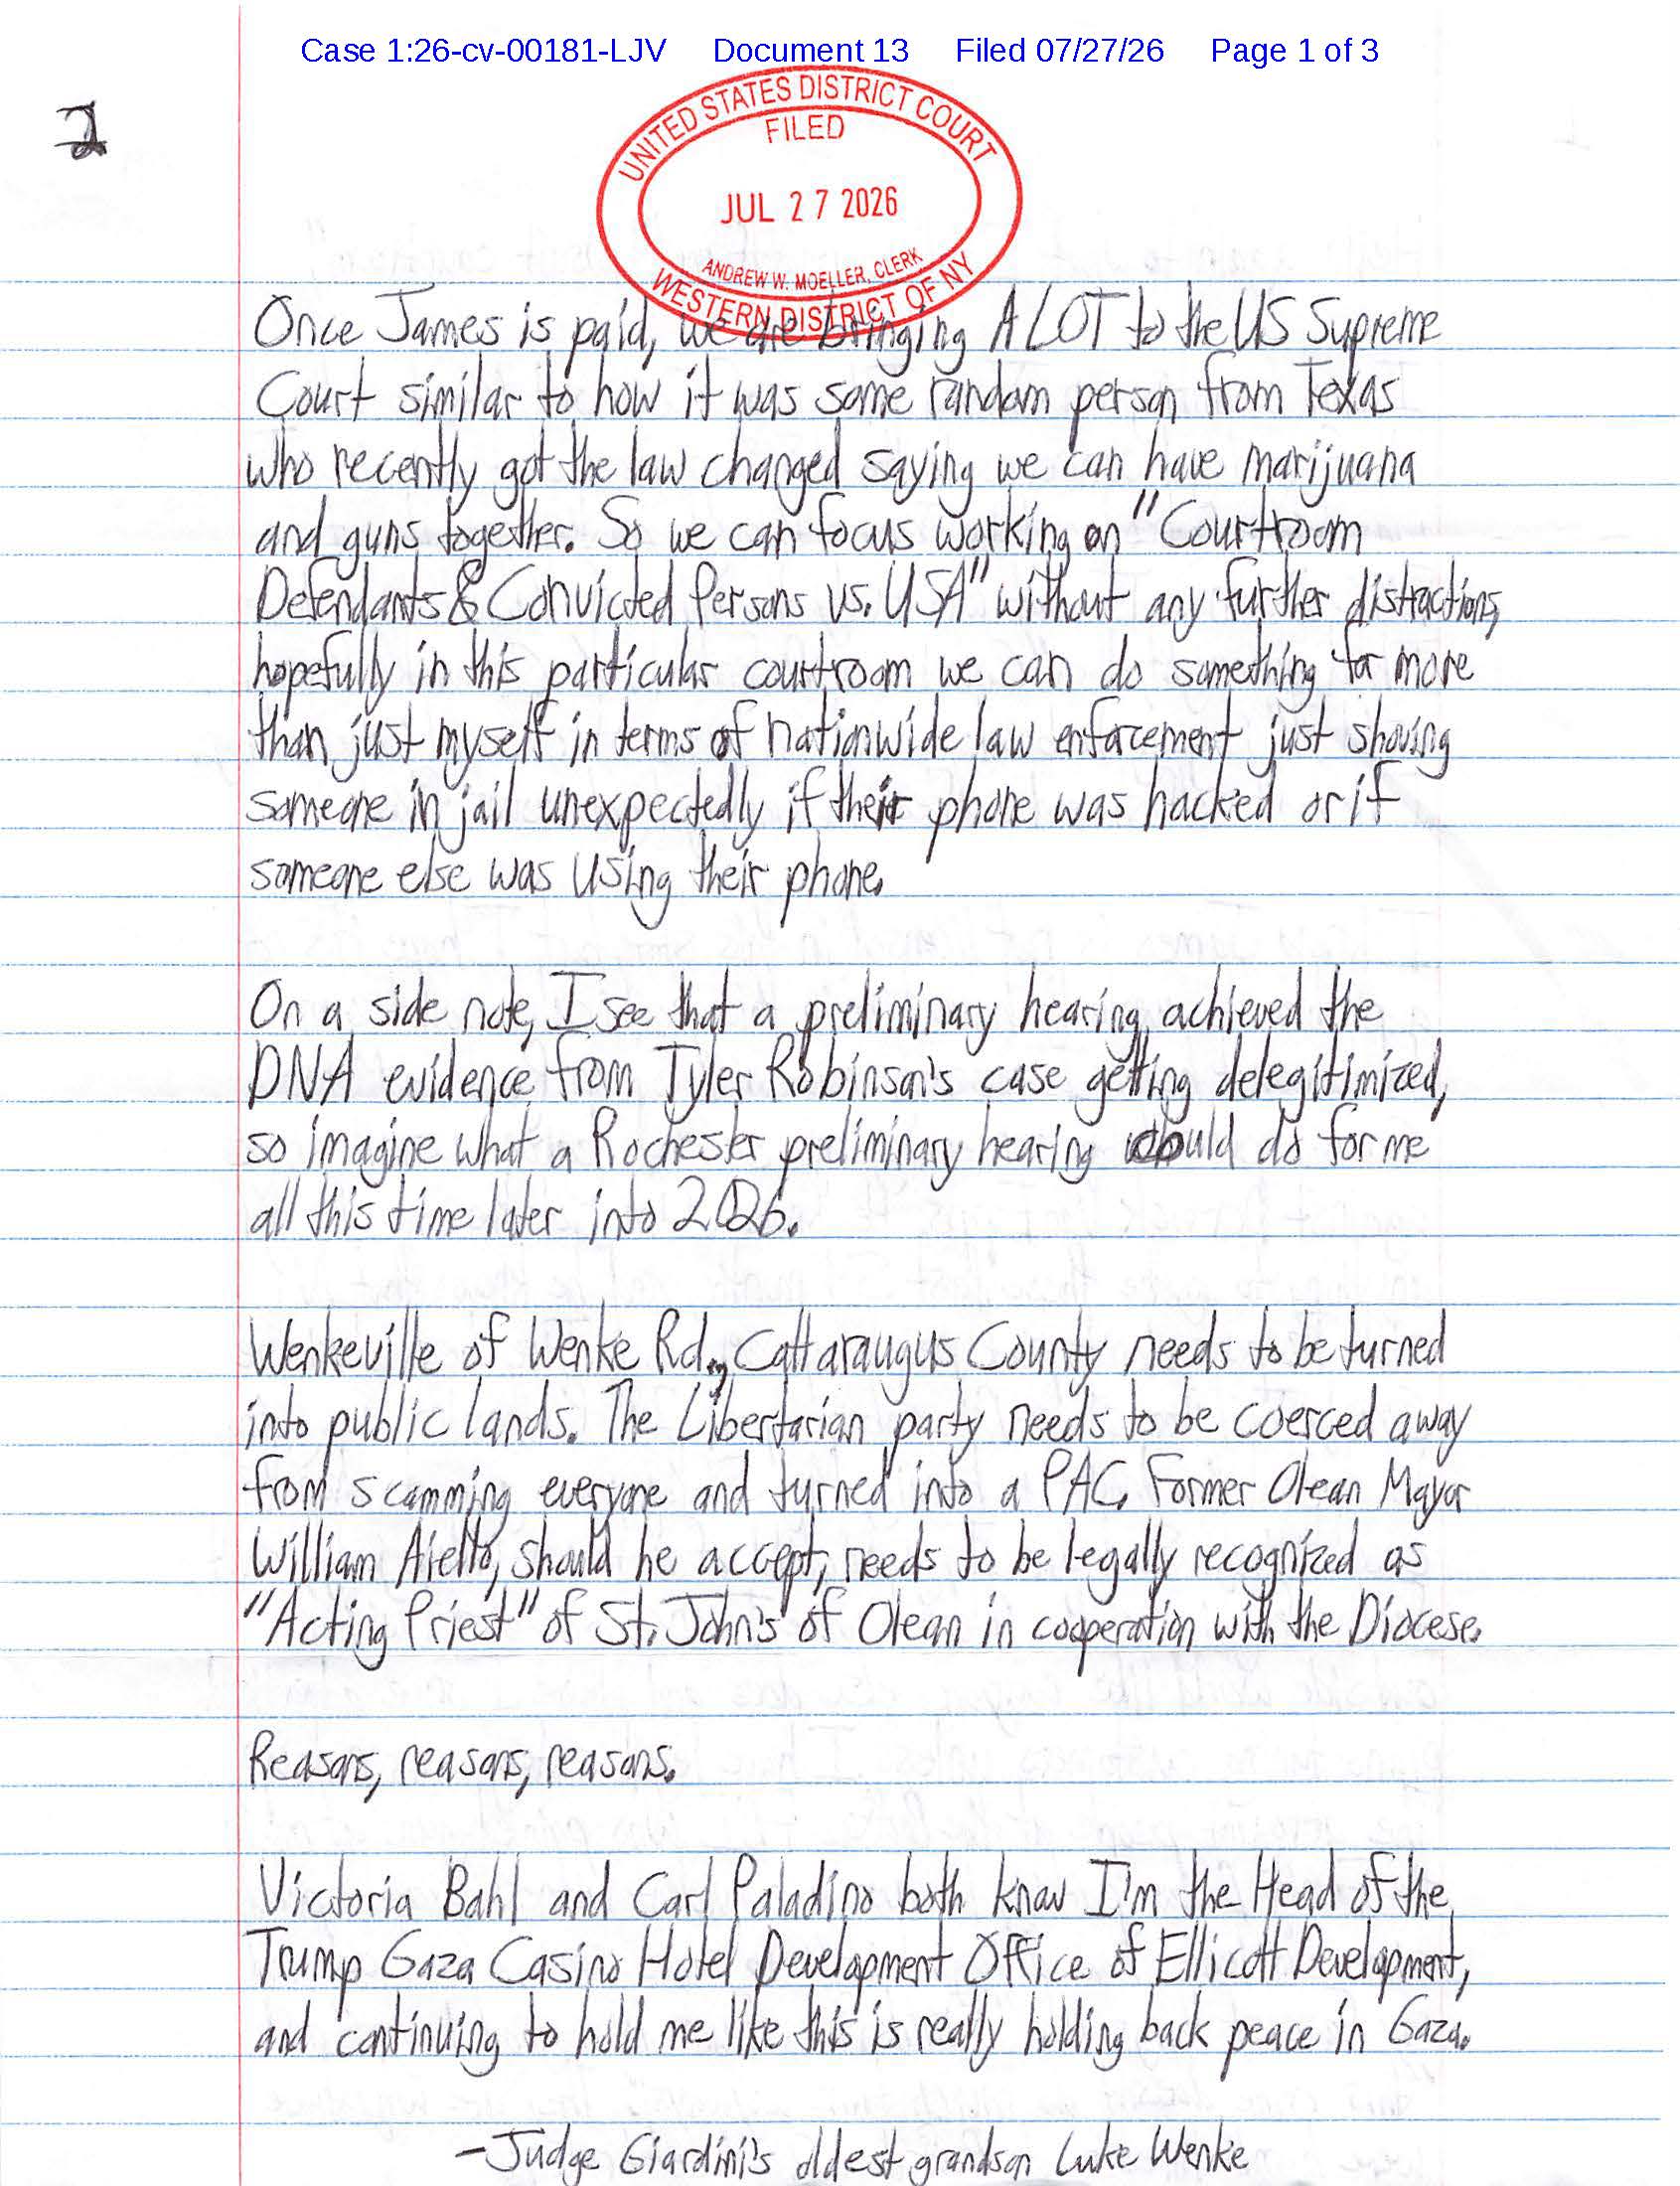 Case 1:26-cv-00181-LJV Document 13 Filed 07/27/26 Page 1 of 3
2
UNITED STATES DISTRICT COURT
FILED
JUL 27 2026
ANDREW W. MOELLER, CLERK
WESTERN DISTRICT OF NY
Once James is paid, we are bringing A LOT to the US Supreme
Court similar to how it was some random person from Texas
who recently got the law changed saying we can have marijuana
and guns together. So we can focus working on "Courtroom
Defendants & Convicted Persons vs. USA" without any further distractions,
hopefully in this particular courtroom we can do something for more
than just myself in terms of nationwide law enforcement just shoving
someone in jail unexpectedly if their phone was hacked or if
someone else was using their phone.
On a side note, I see that a preliminary hearing achieved the
DNA evidence from Tyler Robinson's case getting delegitimized,
so imagine what a Rochester preliminary hearing would do for me
all this time later into 2026.
Wenkeville of Wenke Rd., Cattaraugus County needs to be turned
into public lands. The Libertarian party needs to be coerced away
from scamming everyone and turned into a PAC. Former Olean Mayor
William Aiello, should he accept, needs to be legally recognized as
"Acting Priest" of St. John's of Olean in cooperation with the Diocese.
Reasons, reasons, reasons.
Victoria Bahl and Carl Paladino both know I'm the Head of the
Trump Gaza Casino Hotel Development Office of Ellicott Development,
and continuing to hold me like this is really holding back peace in Gaza.
-Judge Giardini's oldest grandson Luke Wenke